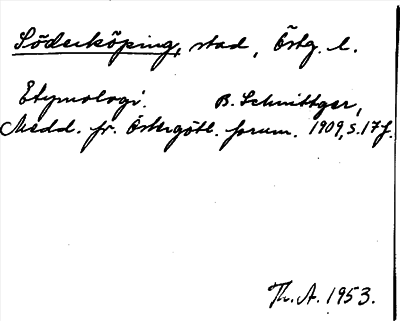 Söderköping, stad, Östg. l.
Etymologi. B. Schnittger,
Medd. fr. Östergötl. fornm. 1909, s. 17 f.
Th. A. 1953.